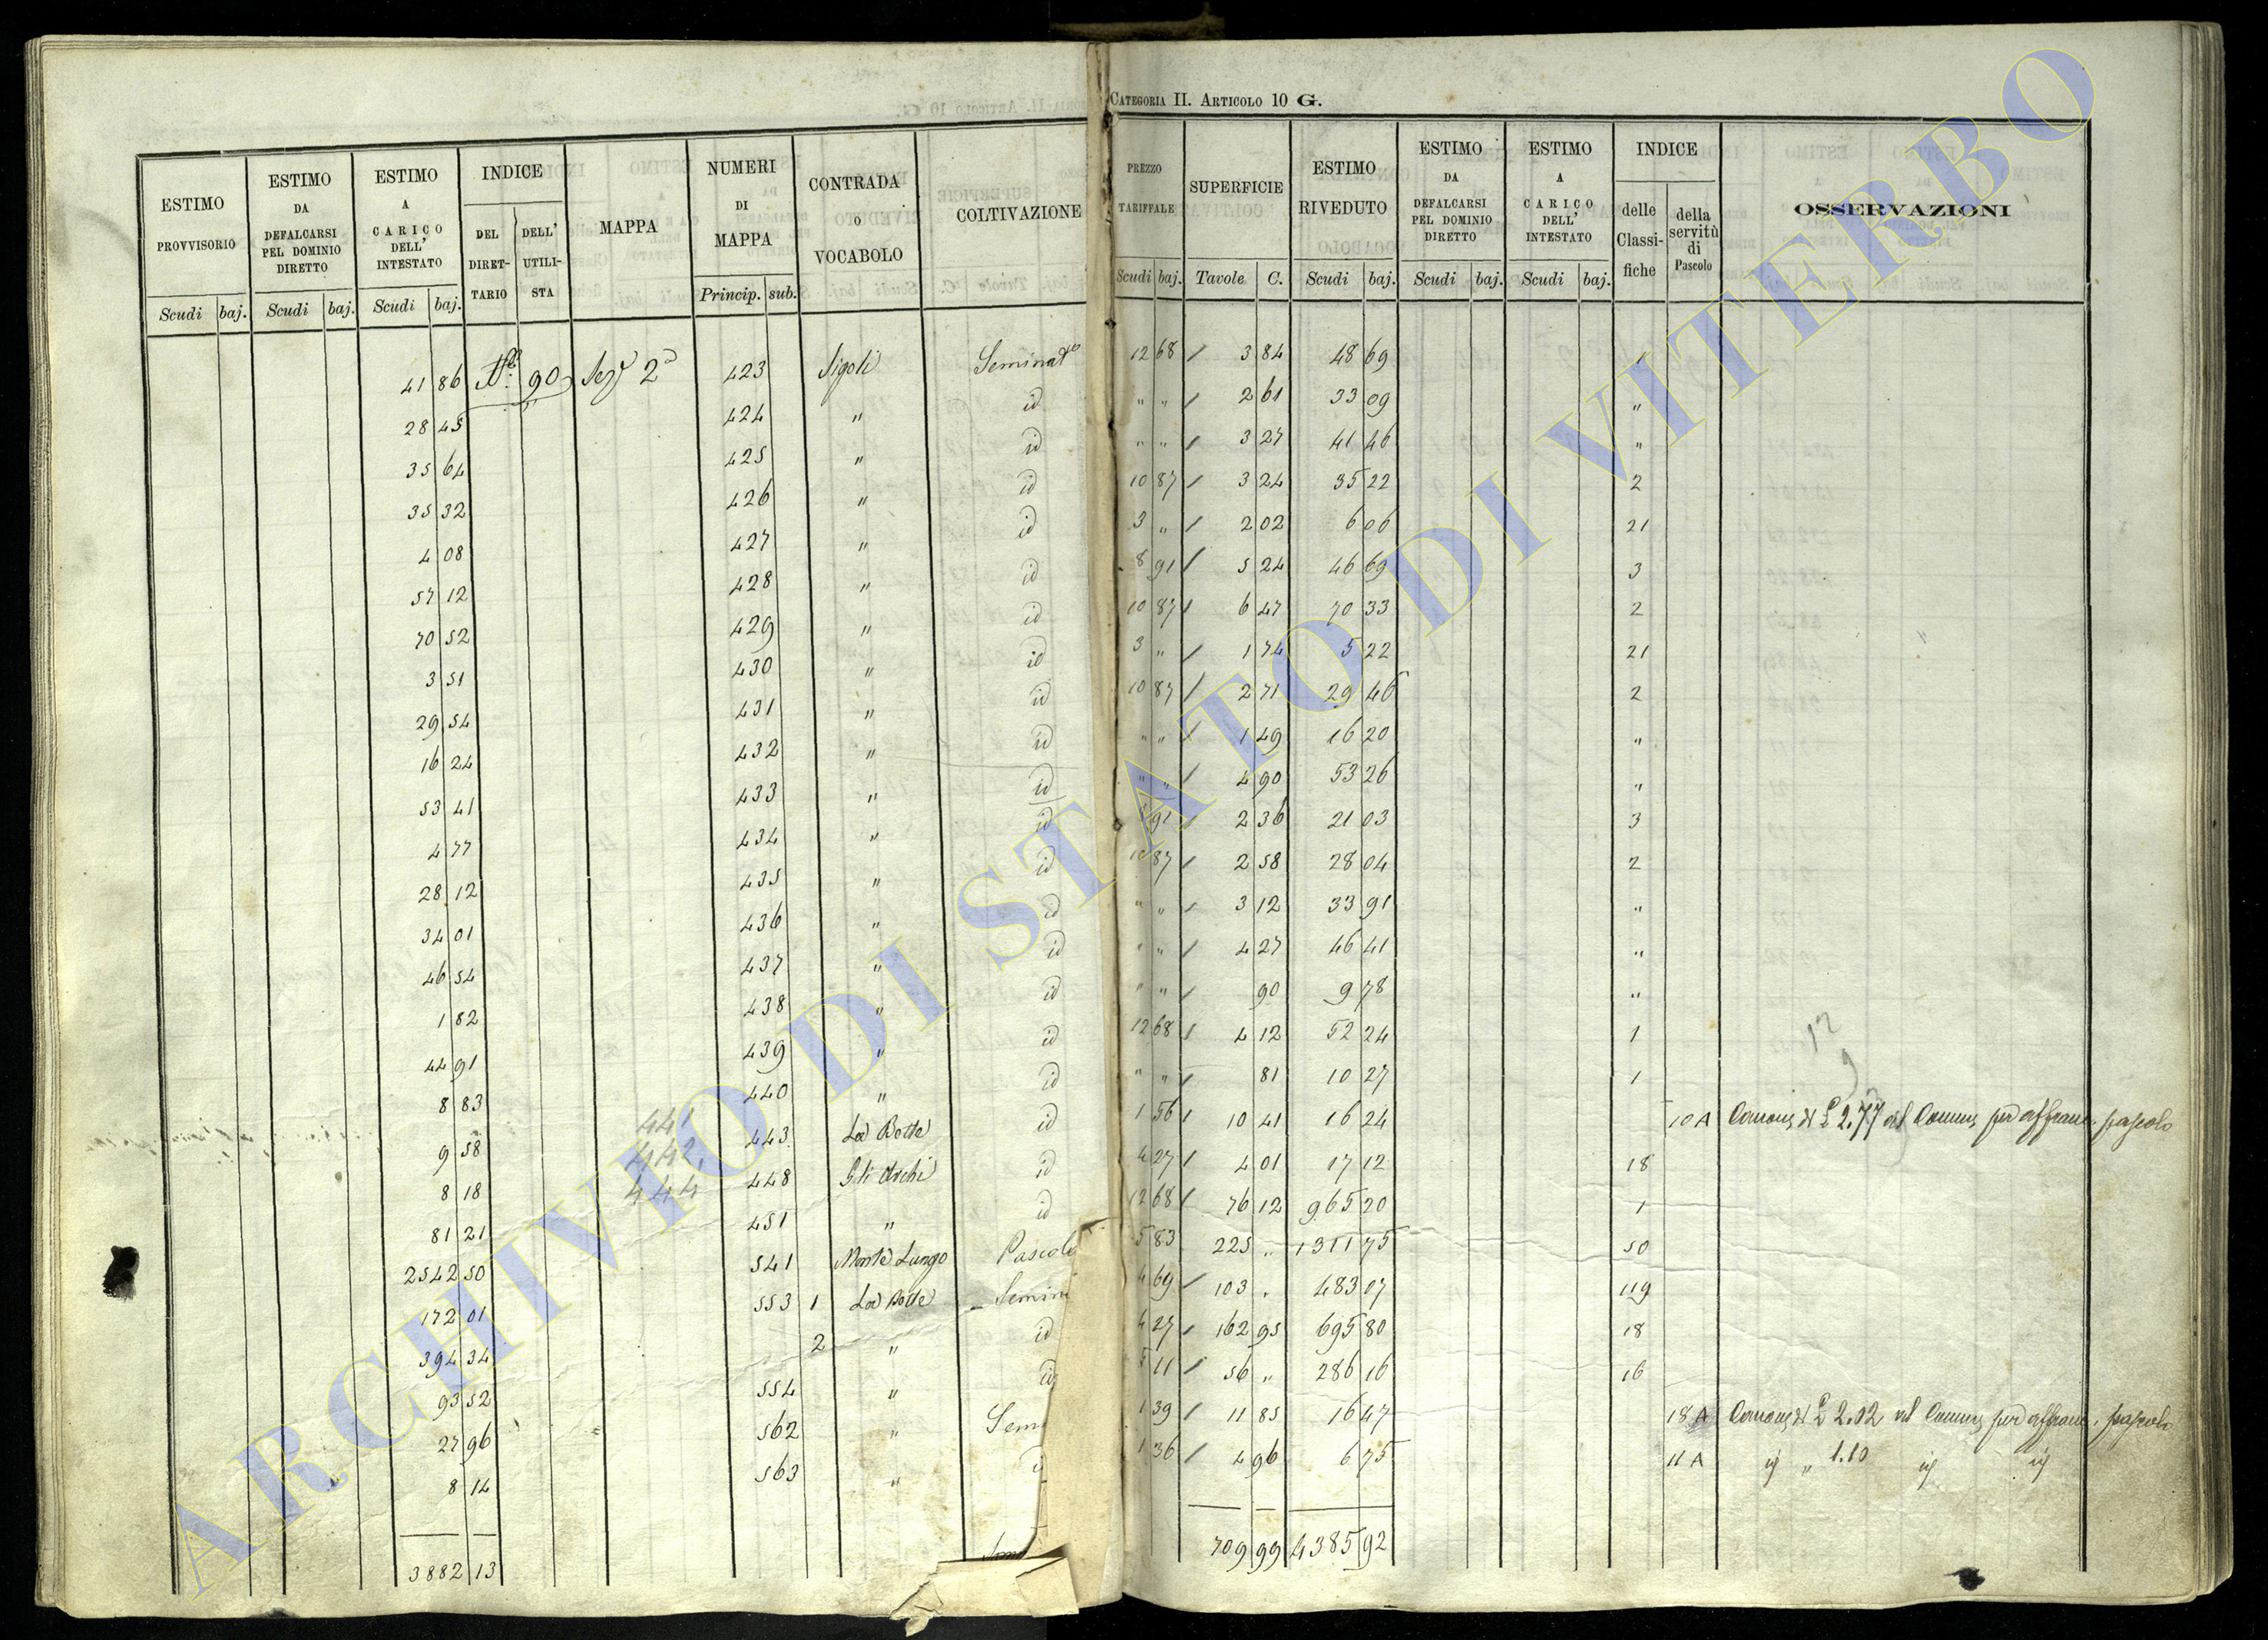 CATEGORIA II. ARTICOLO 10 G.
ESTIMO PROVVISORIO Scudi baj.
ESTIMO DA DEFALCARSI PEL DOMINIO DIRETTO Scudi baj.
ESTIMO A CARICO DELL' INTESTATO Scudi baj.
INDICE DEL DIRET-TARIO DELL' UTILI-STA
MAPPA
NUMERI DI MAPPA Princip. sub.
CONTRADA O VOCABOLO
COLTIVAZIONE
PREZZO TARIFFALE Scudi baj.
SUPERFICIE Tavole C.
ESTIMO RIVEDUTO Scudi baj.
ESTIMO DA DEFALCARSI PEL DOMINIO DIRETTO Scudi baj.
ESTIMO A CARICO DELL' INTESTATO Scudi baj.
INDICE delle Classi-fiche della servitù di Pascolo
OSSERVAZIONI
41 86 90 Sez 2a 423 Sigoli Seminato 12 68 / 3 84 48 69 1
28 45 424 " id " " / 2 61 33 09 "
35 64 425 " id " " / 3 27 41 46 "
35 32 426 " id 10 87 / 3 24 35 22 2
4 08 427 " id 3 " / 2 02 6 06 21
57 12 428 " id 8 91 / 5 24 46 69 3
70 52 429 " id 10 87 / 6 47 70 33 2
3 51 430 " id 3 " / 1 74 5 22 21
29 54 431 " id 10 87 / 2 71 29 46 2
16 24 432 " id " " / 1 49 16 20 "
53 41 433 " id " " / 4 90 53 26 "
4 77 434 " id 8 91 / 2 36 21 03 3
28 12 435 " id 10 87 / 2 58 28 04 2
34 01 436 " id " " / 3 12 33 91 "
46 54 437 " id " " / 4 27 46 41 "
1 82 438 " id " " / 90 9 78 "
44 91 439 " id 12 68 / 4 12 52 24 1
8 83 440 " id " " / 81 10 27 1
12
9
441
442
444
9 58 443 La Botte id 1 56 / 10 41 16 24 10 A Canone di £ 2.77 al Comune per affranc. pascolo
8 18 448 Gli Archi id 4 27 / 4 01 17 12 18
81 21 451 " id 12 68 / 76 12 965 20 1
2542 50 541 Monte Lungo Pascolo 5 83 225 " 1311 75 50
172 01 553 1 La Botte Semin 4 69 / 103 " 483 07 119
394 34 2 " id 4 27 / 162 95 695 80 18
93 52 554 " id 5 11 / 56 " 286 16 16
27 96 562 " Sem 1 39 / 11 85 16 47 18 A Canone di £ 2.02 al Comune per affranc. pascolo
8 14 563 " 1 36 / 4 96 6 75 11 A id " 1.10 id id
3882 13 709 99 4385 92
ARCHIVIO DI STATO DI VITERBO